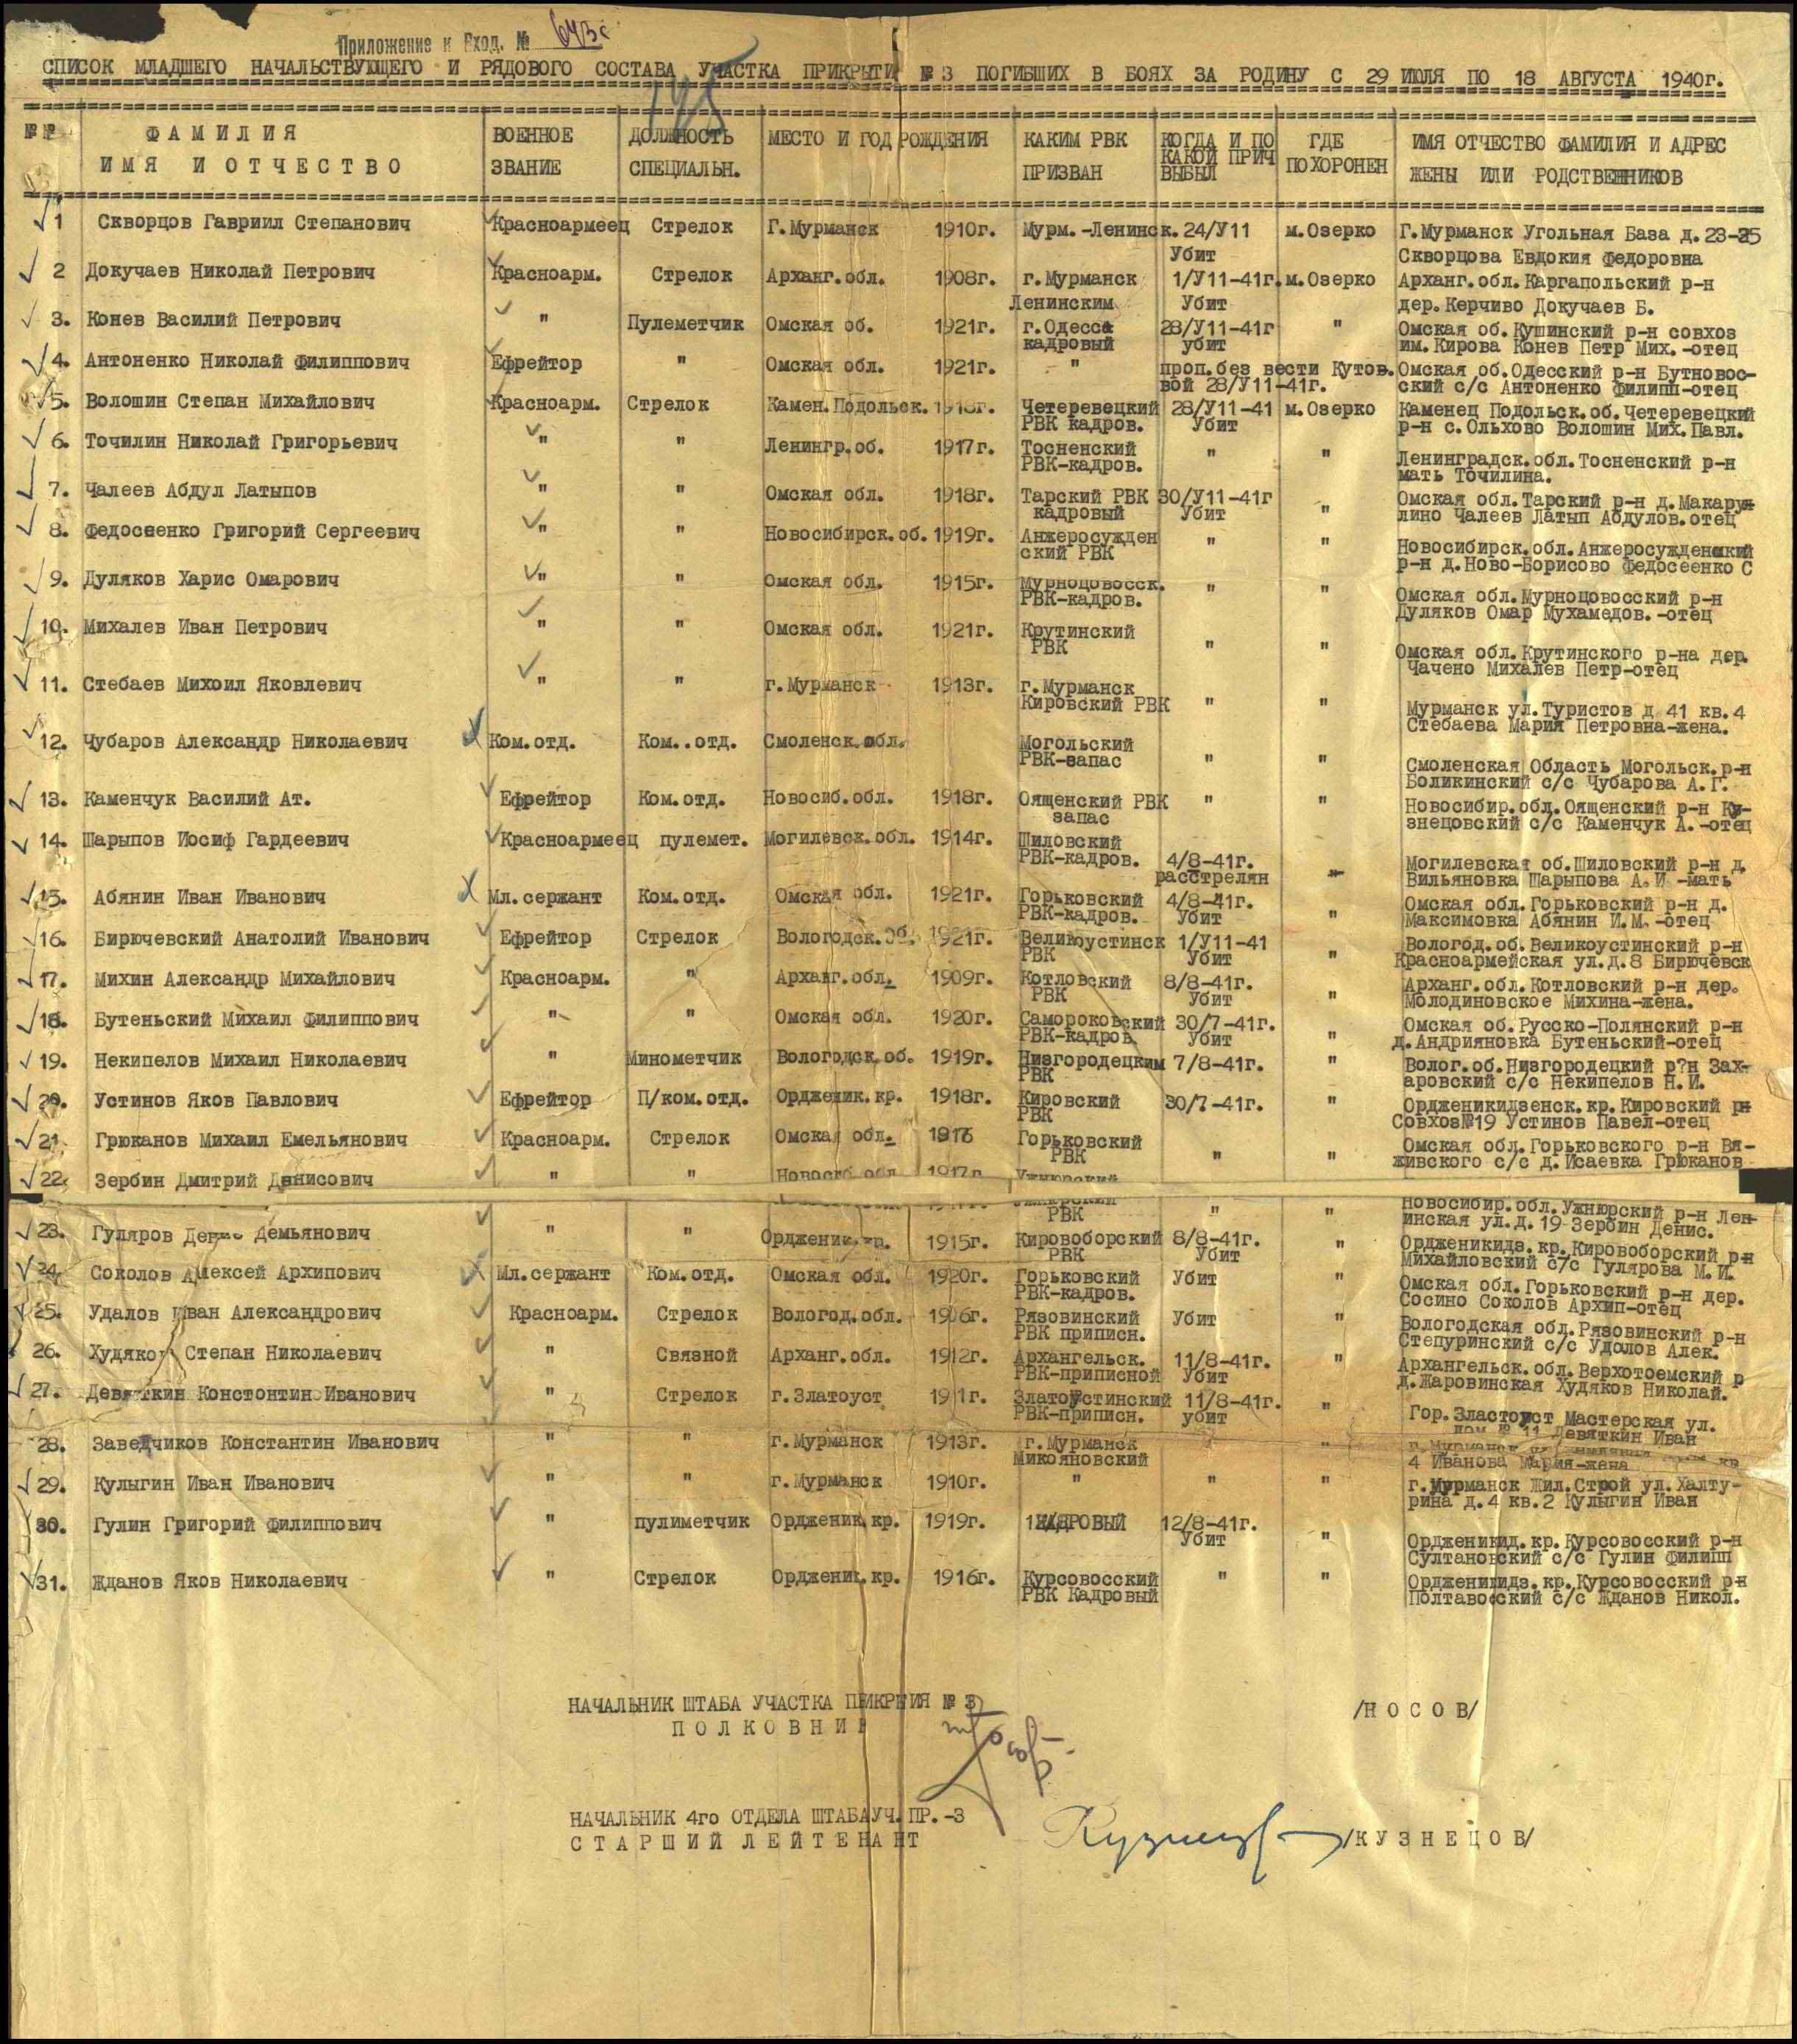 Приложение к Вход. №
СПИСОК МЛАДШЕГО НАЧАЛЬСТВУЮЩЕГО И РЯДОВОГО СОСТАВА УЧАСТКА ПРИКРЫТИ № 3 ПОГИБШИХ В БОЯХ ЗА РОДИНУ С 29 ИЮЛЯ ПО 18 АВГУСТА 1940г.
№№ ФАМИЛИЯ ВОЕННОЕ ДОЛЖНОСТЬ МЕСТО И ГОД РОЖДЕНИЯ КАКИМ РВК КОГДА И ПО ГДЕ ИМЯ ОТЧЕСТВО ФАМИЛИЯ И АДРЕС
ИМЯ И ОТЧЕСТВО ЗВАНИЕ СПЕЦИАЛЬН. ПРИЗВАН КАКОЙ ПРИЧ ПОХОРОНЕН ЖЕНЫ ИЛИ РОДСТВЕННИКОВ
ВЫБЫЛ
1 Скворцов Гавриил Степанович Красноармеец Стрелок Г.Мурманск 1910г. Мурм.-Ленинск. 24/У11 м.Озерко Г.Мурманск Угольная База д.23-25
Убит Скворцова Евдокия Федоровна
2 Докучаев Николай Петрович Красноарм. Стрелок Арханг.обл. 1908г. г.Мурманск 1/У11-41г. м.Озерко Арханг.обл.Каргапольский р-н
Ленинским Убит дер.Керчиво Докучаев Б.
3. Конев Василий Петрович " Пулеметчик Омская об. 1921г. г.Одесса 28/У11-41г " Омская об.Кушинский р-н совхоз
кадровый убит им.Кирова Конев Петр Мих.-отец
4. Антоненко Николай Филиппович Ефрейтор " Омская обл. 1921г. " проп.без вести Кутов. Омская об.Одесский р-н Бутновос-
вой 28/У11-41г. ский с/с Антоненко Филипп-отец
5. Волошин Степан Михайлович Красноарм. Стрелок Камен.Подольск. 1918г. Четеревецкий 28/У11-41 м.Озерко Каменец Подольск.об.Четеревецкий
РВК кадров. Убит р-н с.Ольхово Волошин Мих.Павл.
6. Точилин Николай Григорьевич " " Ленингр.об. 1917г. Тосненский " " Ленинградск.обл.Тосненский р-н
РВК-кадров. мать Точилина.
7. Чалеев Абдул Латыпов " " Омская обл. 1918г. Тарский РВК 30/У11-41г " Омская обл.Тарский р-н д.Макару-
кадровый Убит лино Чалеев Латып Абдулов.отец
8. Федосеенко Григорий Сергеевич " " Новосибирск.об. 1919г. Анжеросужден " " Новосибирск.обл.Анжеросужденский
ский РВК р-н д.Ново-Борисово Федосеенко С
9. Дуляков Харис Омарович " " Омская обл. 1915г. Мурноцовосск. " " Омская обл.Мурноцовосский р-н
РВК-кадров. Дуляков Омар Мухамедов.-отец
10. Михалев Иван Петрович " " Омская обл. 1921г. Крутинский " " Омская обл.Крутинского р-на дер.
РВК Чачено Михалев Петр-отец
11. Стебаев Михоил Яковлевич " " г.Мурманск 1913г. г.Мурманск " " Мурманск ул.Туристов д 41 кв.4
Кировский РВК Стебаева Мария Петровна-жена.
12. Чубаров Александр Николаевич Ком.отд. Ком..отд. Смоленск.обл. Могольский " " Смоленская Область Могольск.р-н
РВК-запас Боликинский с/с Чубарова А.Г.
13. Каменчук Василий Ат. Ефрейтор Ком.отд. Новосиб.обл. 1918г. Оященский РВК " " Новосибир.обл.Оященский р-н Ку-
запас знецовский с/с Каменчук А.-отец
14. Шарыпов Иосиф Гардеевич Красноармеец пулемет. Могилевск.обл. 1914г. Шиловский 4/8-41г. " Могилевская об.Шиловский р-н д.
РВК-кадров. расстрелян Вильяновка Шарыпова А.И -мать
15. Абянин Иван Иванович Мл.сержант Ком.отд. Омская обл. 1921г. Горьковский 4/8-41г. " Омская обл.Горьковский р-н д.
РВК-кадров. Убит Максимовка Абянин И.М.-отец
16. Бирючевский Анатолий Иванович Ефрейтор Стрелок Вологодск.об. 1921г. Великоустинск 1/У11-41 " Вологод.об.Великоустинский р-н
РВК Убит Красноармейская ул.д.8 Бирючевск
17. Михин Александр Михайлович Красноарм. " Арханг.обл. 1909г. Котловский 8/8-41г. " Арханг.обл.Котловский р-н дер.
РВК Убит Молодиновское Михина-жена.
18. Бутеньский Михаил Филиппович " " Омская обл. 1920г. Самороковский 30/7-41г. " Омская об.Русско-Полянский р-н
РВК-кадров. Убит д.Андрияновка Бутеньский-отец
19. Некипелов Михаил Николаевич " Минометчик Вологодск.об. 1919г. Низгородецким 7/8-41г. " Волог.об.Низгородецкий р?н Зах-
РВК аровский с/с Некипелов Н.И.
20. Устинов Яков Павлович Ефрейтор П/ком.отд. Ордженик.кр. 1918г. Кировский 30/7-41г. " Ордженикидзенск.кр.Кировский р-н
РВК Совхоз№19 Устинов Павел-отец
21. Грюканов Михаил Емельянович Красноарм. Стрелок Омская обл. 1916 Горьковский " " Омская обл.Горьковского р-н Вя-
РВК живского с/с д.Исаевка Грюканов
22. Зербин Дмитрий Денисович " " Новосиб.обл 1917г Ужнюрский " " Новосибир.обл.Ужнюрский р-н Лен-
РВК инская ул.д.19-Зербин Денис.
23. Гуляров Денис Демьянович " " Орджених.кр. 1915г. Кировоборский 8/8-41г. " Ордженикидз.кр.Кировоборский р-н
РВК Убит Михайловский с/с Гулярова М.И.
24. Соколов Алексей Архипович Мл.сержант Ком.отд. Омская обл. 1920г. Горьковский Убит " Омская обл.Горьковский р-н дер.
РВК-кадров. Сосино Соколов Архип-отец
25. Удалов Иван Александрович Красноарм. Стрелок Вологод.обл. 1906г. Рязовинский Убит " Вологодская обл.Рязовинский р-н
РВК приписн. Степуринский с/с Удолов Алек.
26. Худяков Степан Николаевич " Связной Арханг.обл. 1912г. Архангельск. 11/8-41г. " Архангельск.обл.Верхотоемский р
РВК-приписной Убит д.Жаровинская Худяков Николай.
27. Девяткин Констонтин Иванович " Стрелок г.Златоуст 1911г. Златоустинский 11/8-41г. " Гор.Зластоуст Мастерская ул.
РВК-приписн. убит дом № 11 Девяткин Иван
28. Заведчиков Константин Иванович " " г.Мурманск 1913г. г.Мурманск " г.Мурманск
Микояновский 4 Иванова Мария-жена
29. Кулыгин Иван Иванович " " г.Мурманск 1910г. " " " г.Мурманск Жил.Строй ул.Халту-
рина д.4 кв.2 Кулыгин Иван
30. Гулин Григорий Филиппович " пулиметчик Орджених.кр. 1919г. КАДРОВЫЙ 12/8-41г. " Ордженикид.кр.Курсовосский р-н
Убит Султановский с/с Гулин Филипп
31. Жданов Яков Николаевич " Стрелок Орджених.кр. 1916г. Курсовосский " " Ордженикидз.кр.Курсовосский р-н
РВК Кадровый Полтавосский с/с Жданов Никол.
НАЧАЛЬНИК ШТАБА УЧАСТКА ПРИКРЫТИЯ № 3 /НОСОВ/
ПОЛКОВНИК
НАЧАЛЬНИК 4го ОТДЕЛА ШТАБА УЧ.ПР.-3
СТАРШИЙ ЛЕЙТЕНАНТ Кузнецов /КУЗНЕЦОВ/